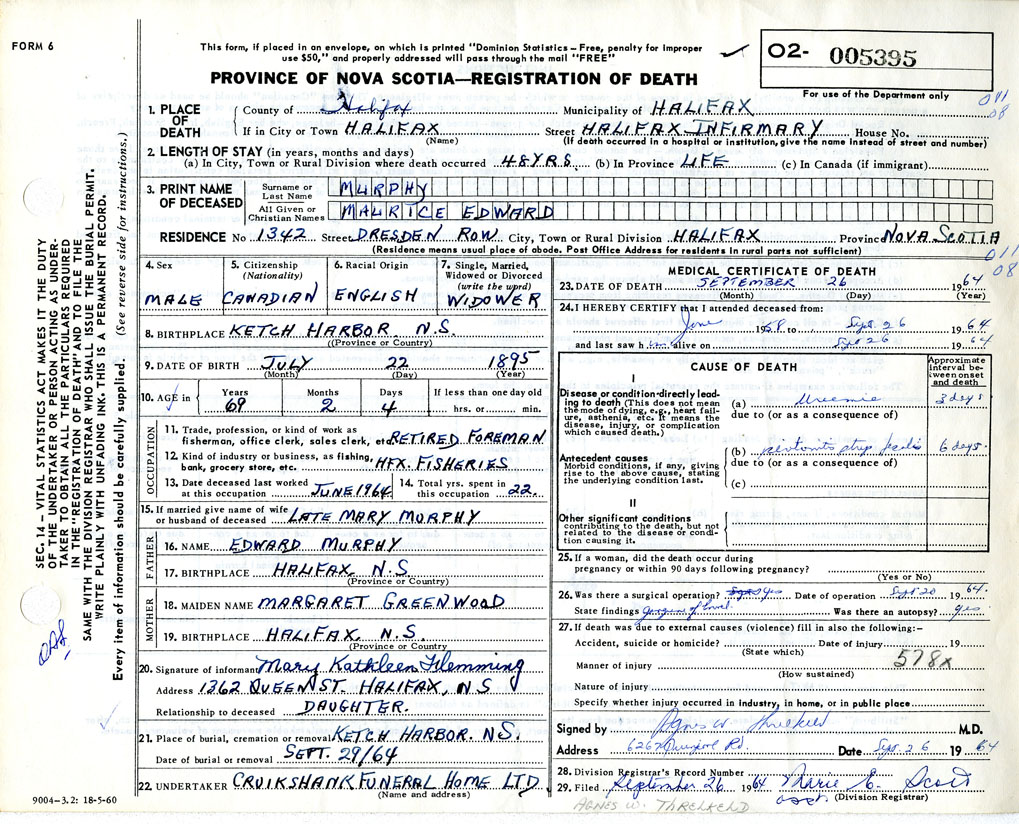 FORM 6
This form, if placed in an envelope, on which is printed "Dominion Statistics – Free, penalty for improper
use $50," and properly addressed will pass through the mail "FREE"
PROVINCE OF NOVA SCOTIA—REGISTRATION OF DEATH
O2- 005395
For use of the Department only
011
08
1. PLACE OF DEATH
County of Halifax Municipality of HALIFAX
If in City or Town HALIFAX Street HALIFAX INFIRMARY House No.
(Name) (If death occurred in a hospital or institution, give the name instead of street and number)
2. LENGTH OF STAY (in years, months and days)
(a) In City, Town or Rural Division where death occurred 48 YRS. (b) In Province LIFE (c) In Canada (if immigrant)
3. PRINT NAME OF DECEASED
Surname or Last Name MURPHY
All Given or Christian Names MAURICE EDWARD
RESIDENCE No 1342 Street DRESDEN ROW City, Town or Rural Division HALIFAX Province NOVA SCOTIA
(Residence means usual place of abode. Post Office Address for residents in rural parts not sufficient)
011
08
4. Sex
MALE
5. Citizenship (Nationality)
CANADIAN
6. Racial Origin
ENGLISH
7. Single, Married, Widowed or Divorced (write the word)
WIDOWER
8. BIRTHPLACE KETCH HARBOR N.S.
(Province or Country)
9. DATE OF BIRTH JULY 22 1895
(Month) (Day) (Year)
10. AGE in Years Months Days If less than one day old
69 2 4 hrs. or min.
OCCUPATION
11. Trade, profession, or kind of work as
fisherman, office clerk, sales clerk, etc. RETIRED FOREMAN
12. Kind of industry or business, as fishing,
bank, grocery store, etc. HFX. FISHERIES
13. Date deceased last worked at this occupation JUNE 1964 14. Total yrs. spent in this occupation 22.
15. If married give name of wife
or husband of deceased LATE MARY MURPHY
FATHER
16. NAME EDWARD MURPHY
17. BIRTHPLACE HALIFAX N.S.
(Province or Country)
MOTHER
18. MAIDEN NAME MARGARET GREENWOOD
19. BIRTHPLACE HALIFAX, N.S.
(Province or Country)
20. Signature of informant Mary Kathleen Flemming
Address 1362 QUEEN ST. HALIFAX, N S
Relationship to deceased DAUGHTER.
21. Place of burial, cremation or removal KETCH HARBOR. N.S.
Date of burial or removal SEPT. 29/64
22. UNDERTAKER CRUIKSHANK FUNERAL HOME LTD.
(Name and address)
9004—3.2: 18-5-60
MEDICAL CERTIFICATE OF DEATH
23. DATE OF DEATH SEPTEMBER 26 1964
(Month) (Day) (Year)
24. I HEREBY CERTIFY that I attended deceased from:
June 1958 to Sept 26 1964
and last saw him alive on Sept 26 1964
CAUSE OF DEATH
Approximate interval between onset and death
I
Disease or condition directly leading to death (This does not mean the mode of dying, e.g., heart failure, asthenia, etc. It means the disease, injury, or complication which caused death.)
(a) Uremia 3 days
due to (or as a consequence of)
Antecedent causes
Morbid conditions, if any, giving rise to the above cause, stating the underlying condition last.
(b) 6 days.
due to (or as a consequence of)
(c)
II
Other significant conditions
contributing to the death, but not related to the disease or condition causing it.
25. If a woman, did the death occur during
pregnancy or within 90 days following pregnancy?
(Yes or No)
26. Was there a surgical operation? yes Date of operation Sept 20 1964.
State findings Was there an autopsy? yes
27. If death was due to external causes (violence) fill in also the following:-
Accident, suicide or homicide? Date of injury 19
(State which)
Manner of injury 578x
(How sustained)
Nature of injury
Specify whether injury occurred in industry, in home, or in public place
Signed by Agnes W. Threlkeld M.D.
Address 6262 Rd. Date Sept. 26 1964
28. Division Registrar's Record Number
29. Filed September 26 1964 Marie E. Scott
(Division Registrar)
AGNES W. THRELKELD
SEC. 14 – VITAL STATISTICS ACT MAKES IT THE DUTY
OF THE UNDERTAKER OR PERSON ACTING AS UNDER-
TAKER TO OBTAIN ALL THE PARTICULARS REQUIRED
IN THE "REGISTRATION OF DEATH" AND TO FILE THE
SAME WITH THE DIVISION REGISTRAR WHO SHALL ISSUE THE BURIAL PERMIT.
WRITE PLAINLY WITH UNFADING INK. THIS IS A PERMANENT RECORD.
Every item of information should be carefully supplied. (See reverse side for instructions.)